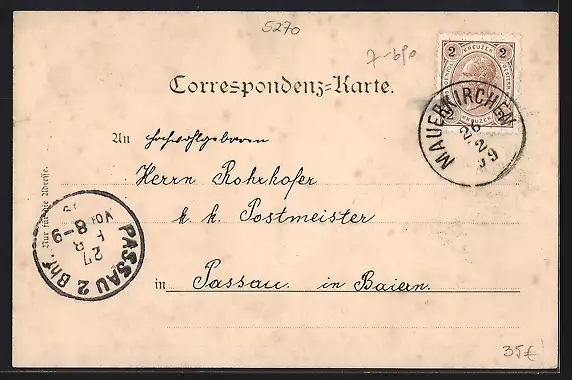 5270
7-
2 KREUZER 2
Correspondenz-Karte.
MAUERKIRCHEN
26
2
99
An hochwohlgeboren
Herrn Rohrhofer
k. k. Postmeister
in Passau in Baiern.
Nur für die Adresse.
PASSAU 2 Bhf.
27
FR
8-9
VOR
35€